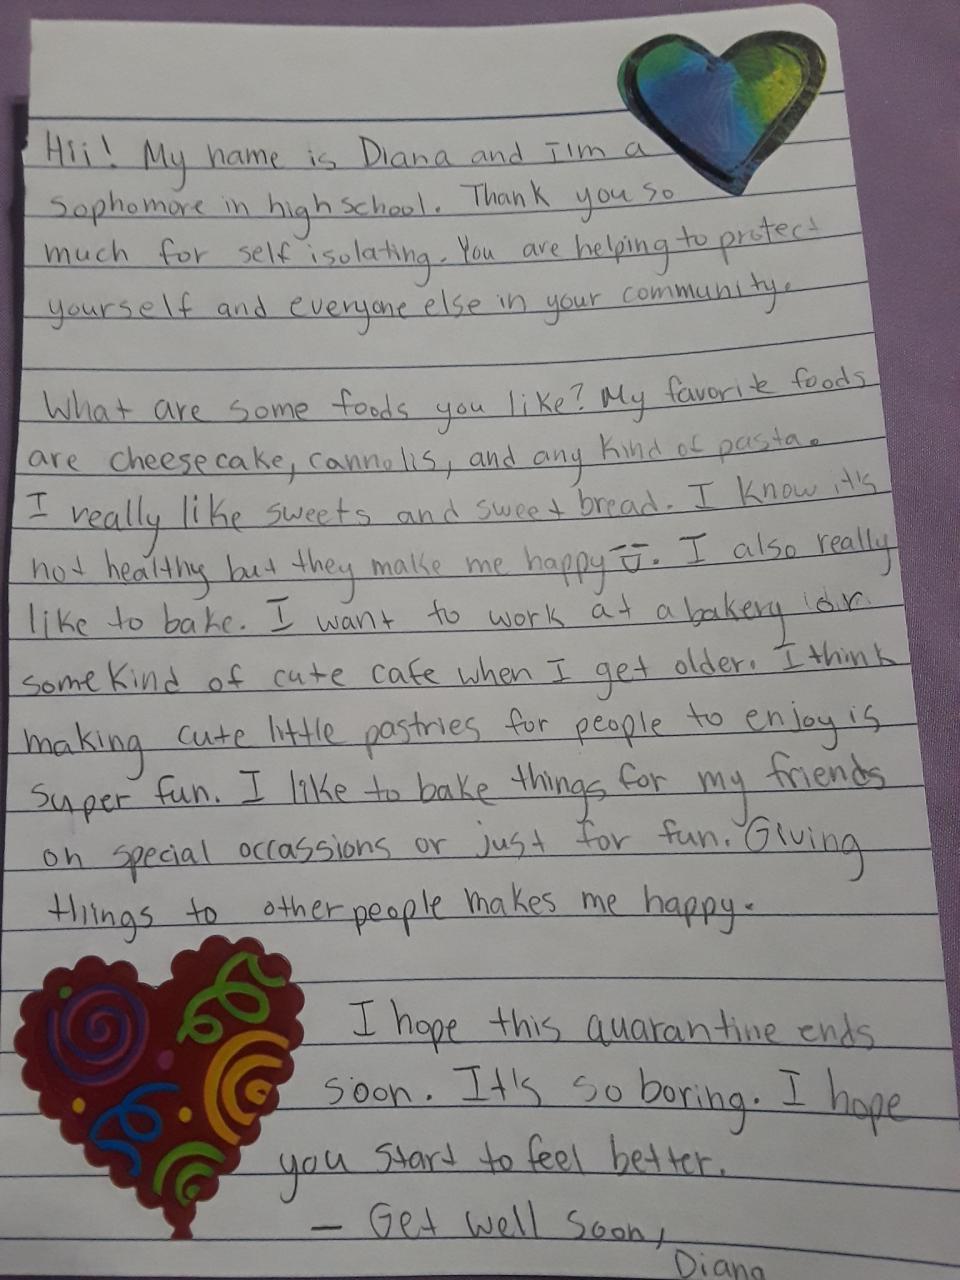 Hii! My name is Diana and I'm a
sophomore in high school. Thank you so
much for self isolating. You are helping to protect
yourself and everyone else in your community.
What are some foods you like? My favorite foods
are cheesecake, cannolis, and any kind of pasta.
I really like sweets and sweet bread. I know it's
not healthy but they make me happy. I also really
like to bake. I want to work at a bakery or
some kind of cute cafe when I get older. I think
making cute little pastries for people to enjoy is
super fun. I like to bake things for my friends
on special occassions or just for fun. Giving
things to other people makes me happy.
I hope this quarantine ends
soon. It's so boring. I hope
you start to feel better.
— Get well soon,
Diana